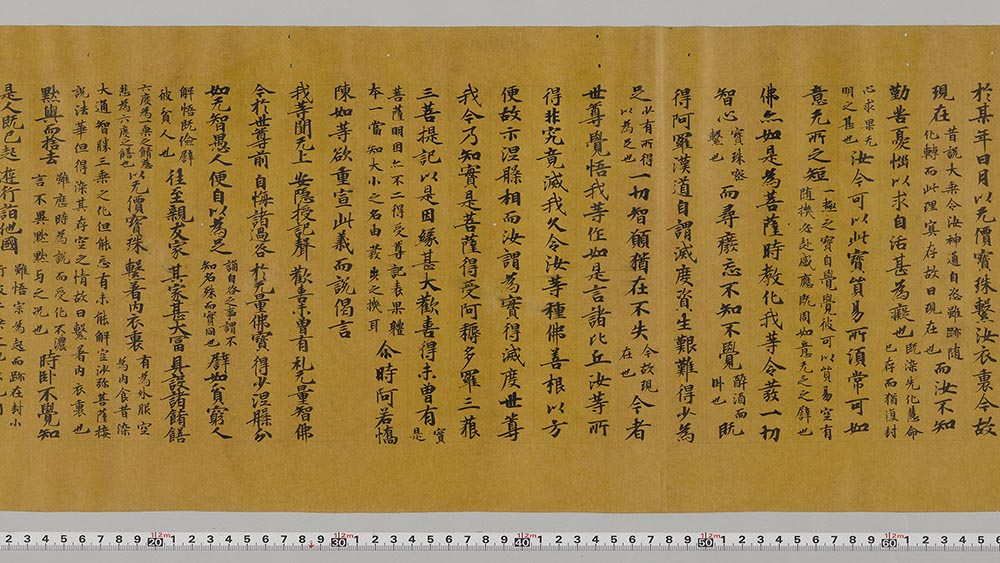 於某年日月以无價寶珠繋汝衣裏今故
現在昔説大乘令汝神通自恣雖跡随
化轉而此理冥存故曰現在也而汝不知
勤苦憂惱以求自活甚為癡也既深先化慧命
已存而猶復封
心求果无
明之甚也汝今可以此寶貿易所須常可如
意无所乏短一趣之寶自覺覺彼可以貿易空有
随揆各赴感應既周如意无乏之譬也
佛亦如是為菩薩時教化我等令發一切
智心寶珠
譬也而尋癈忘不知不覺醉酒而
卧也既
得阿羅漢道自謂滅度資生艱難得少為
足以有所得
以為足也一切智願猶在不失今故現
在也今者
世尊覺悟我等作如是言諸比丘汝等所
得非究竟滅我久令汝等種佛善根以方
便故示涅槃相而汝謂為實得滅度世尊
我今乃知實是菩薩得受阿耨多羅三藐
三菩提記以是因緣甚大歡喜得未曾有實
是
菩薩明因亦不二得受尊記表果軆
奉一當知大小之名由茲典之換耳尒時阿若憍
陳如等欲重宣此義而説偈言
我等聞无上 安隠授記聲 歡喜未曾有 礼无量智佛
今於世尊前 自悔諸過咎 於无量佛寶 得少涅槃分
如无智愚人 便自以為足誦自咎之事謂不
知名殊而實同也譬如貧窮人
解悟既儉譬
彼貧人也往至親友家 其家甚大富 具設諸餚饍
六度為乘之餚慈
悲為六度之饍也以无價寶珠 繋着内衣裏有為外服空
為内食昔深
大通智勝三乘之化但能忘有未能解空沙弥菩薩接
説法華但得深其存空之情故曰繋着内衣裏也
默與而捨去雖應時為説而受化不濃
言不異默默与之况也時卧不覺知
是人既已起 遊行詣他國雖悟宗為起而跡在封小